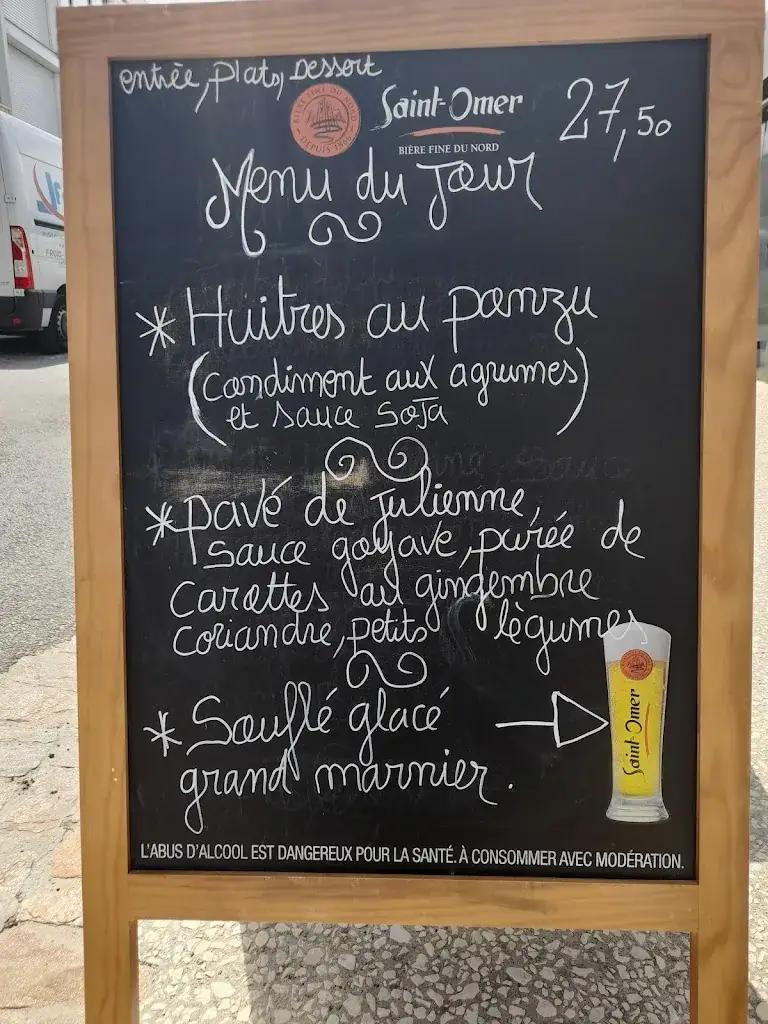 entrée, plats, Dessert
BIÈRE FINE DU NORD
DEPUIS 1866
Saint-Omer
BIÈRE FINE DU NORD
27,50
Menu du Jour
* Huitres au ponzu
(Condiment aux agrumes)
et sauce Soja
* pavé de julienne,
sauce goyave, purée de
Carottes au gingembre
coriandre, petits légumes
* Soufflé glacé
grand marnier.
Saint-Omer
L'ABUS D'ALCOOL EST DANGEREUX POUR LA SANTÉ. À CONSOMMER AVEC MODÉRATION.